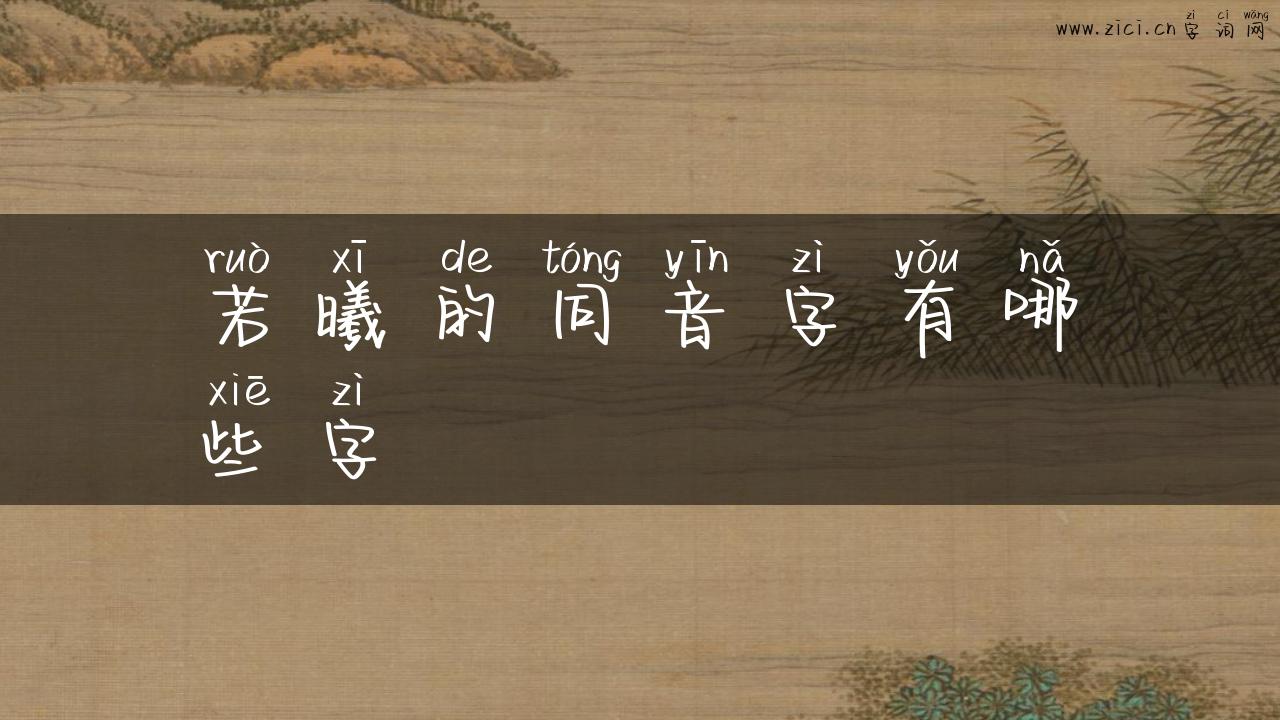 zì cí wǎng
www.zici.cn 字词网
ruò xī de tóng yīn zì yǒu nǎ
若曦的同音字有哪
xiē zì
些字